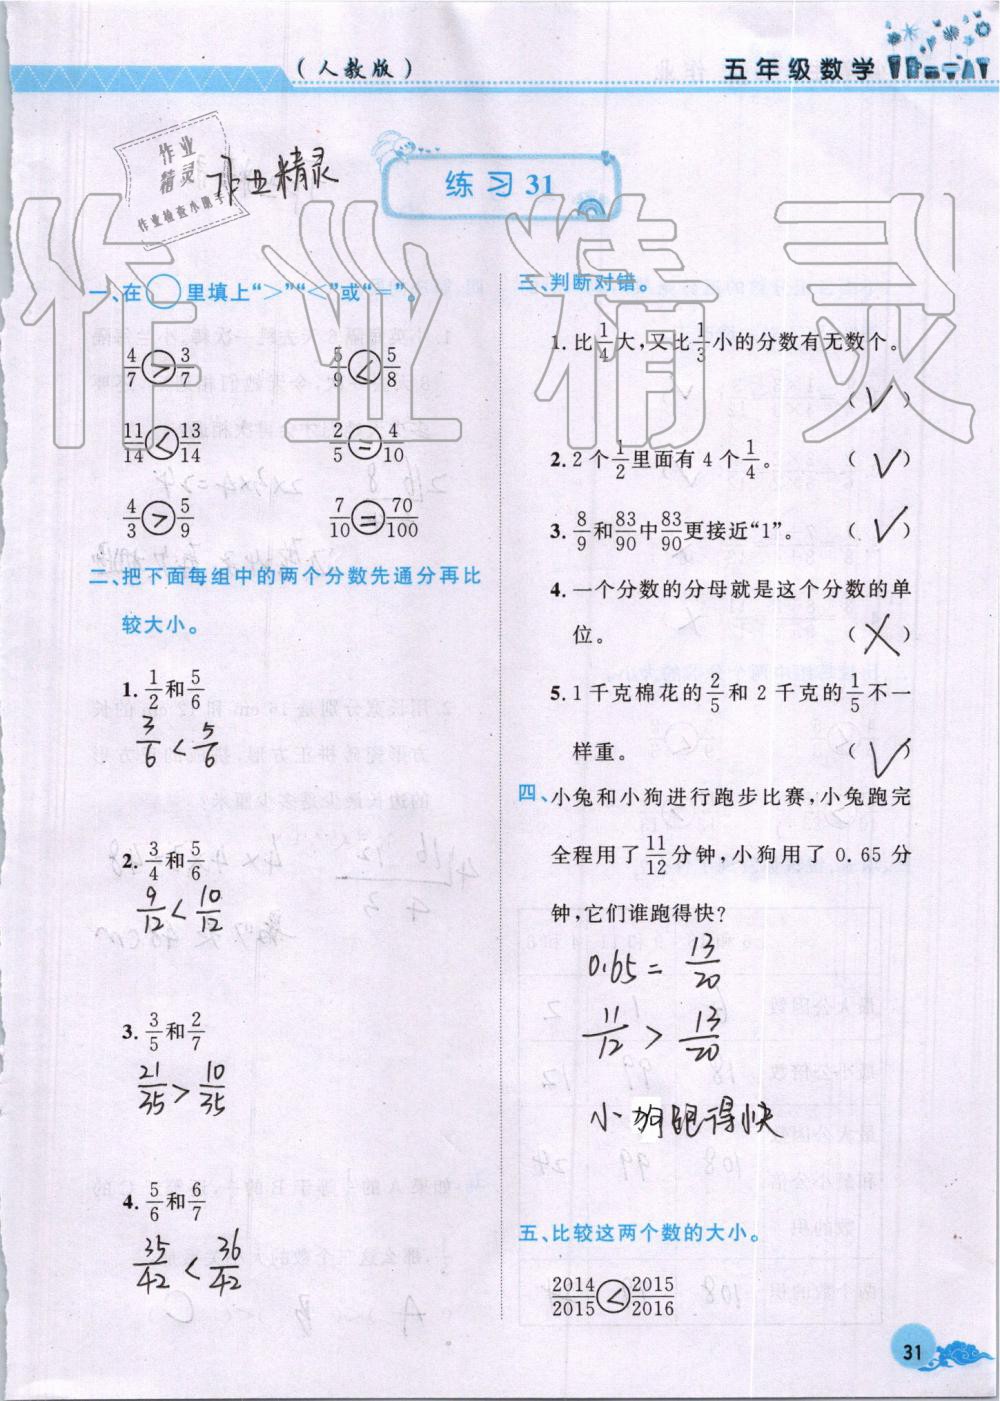 (人教版)
五年级数学
作业
精灵
作业检查小助手
作业精灵
练习 31
作业精灵
一、在○里填上“>”“<”或“=”。
4/7 > 3/7 5/9 < 5/8
11/14 < 13/14 2/5 = 4/10
4/3 > 5/9 7/10 = 70/100
二、把下面每组中的两个分数先通分再比
较大小。
1. 1/2 和 5/6
3/6 < 5/6
2. 3/4 和 5/6
9/12 < 10/12
3. 3/5 和 2/7
21/35 > 10/35
4. 5/6 和 6/7
35/42 < 36/42
三、判断对错。
1. 比 1/4 大,又比 1/3 小的分数有无数个。
( √ )
2. 2 个 1/2 里面有 4 个 1/4。 ( √ )
3. 8/9 和 83/90 中 83/90 更接近“1”。 ( √ )
4. 一个分数的分母就是这个分数的单
位。 ( × )
5. 1 千克棉花的 2/5 和 2 千克的 1/5 不一
样重。 ( √ )
四、小兔和小狗进行跑步比赛,小兔跑完
全程用了 11/12 分钟,小狗用了 0.65 分
钟,它们谁跑得快?
0.65 = 13/20
11/12 > 13/20
小狗跑得快
五、比较这两个数的大小。
2014/2015 < 2015/2016
31